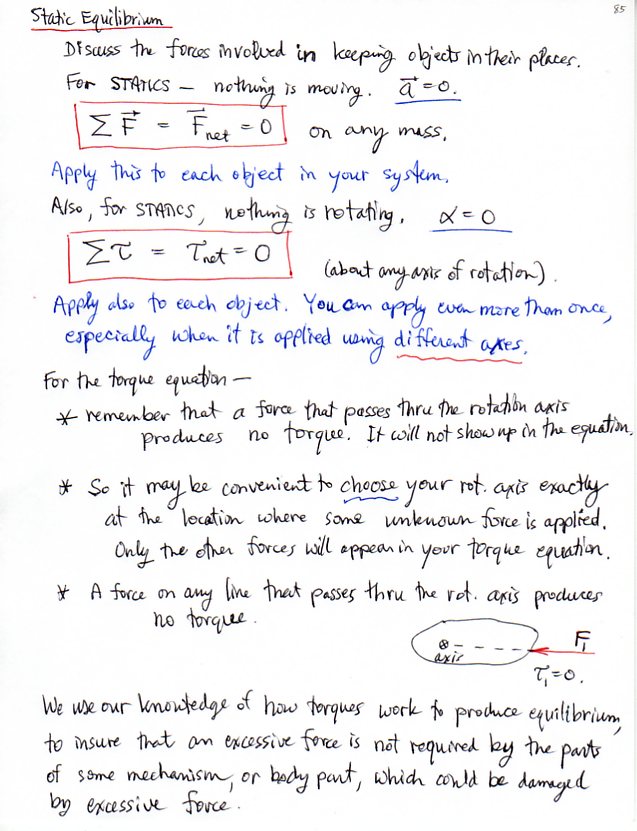 85
Static Equilibrium
Discuss the forces involved in keeping objects in their places.
For STATICS – nothing is moving. a⃗ = 0.
∑ F⃗ = F⃗net = 0 on any mass.
Apply this to each object in your system.
Also, for STATICS, nothing is rotating. α = 0
∑τ = τnet = 0 (about any axis of rotation).
Apply also to each object. You can apply even more than once,
especially when it is applied using different axes.
For the torque equation –
* remember that a force that passes thru the rotation axis
produces no torque. It will not show up in the equation.
* So it may be convenient to choose your rot. axis exactly
at the location where some unknown force is applied.
Only the other forces will appear in your torque equation.
* A force on any line that passes thru the rot. axis produces
no torque.
axis F₁
τ₁ = 0.
We use our knowledge of how torques work to produce equilibrium,
to insure that an excessive force is not required by the parts
of some mechanism, or body part, which could be damaged
by excessive force.